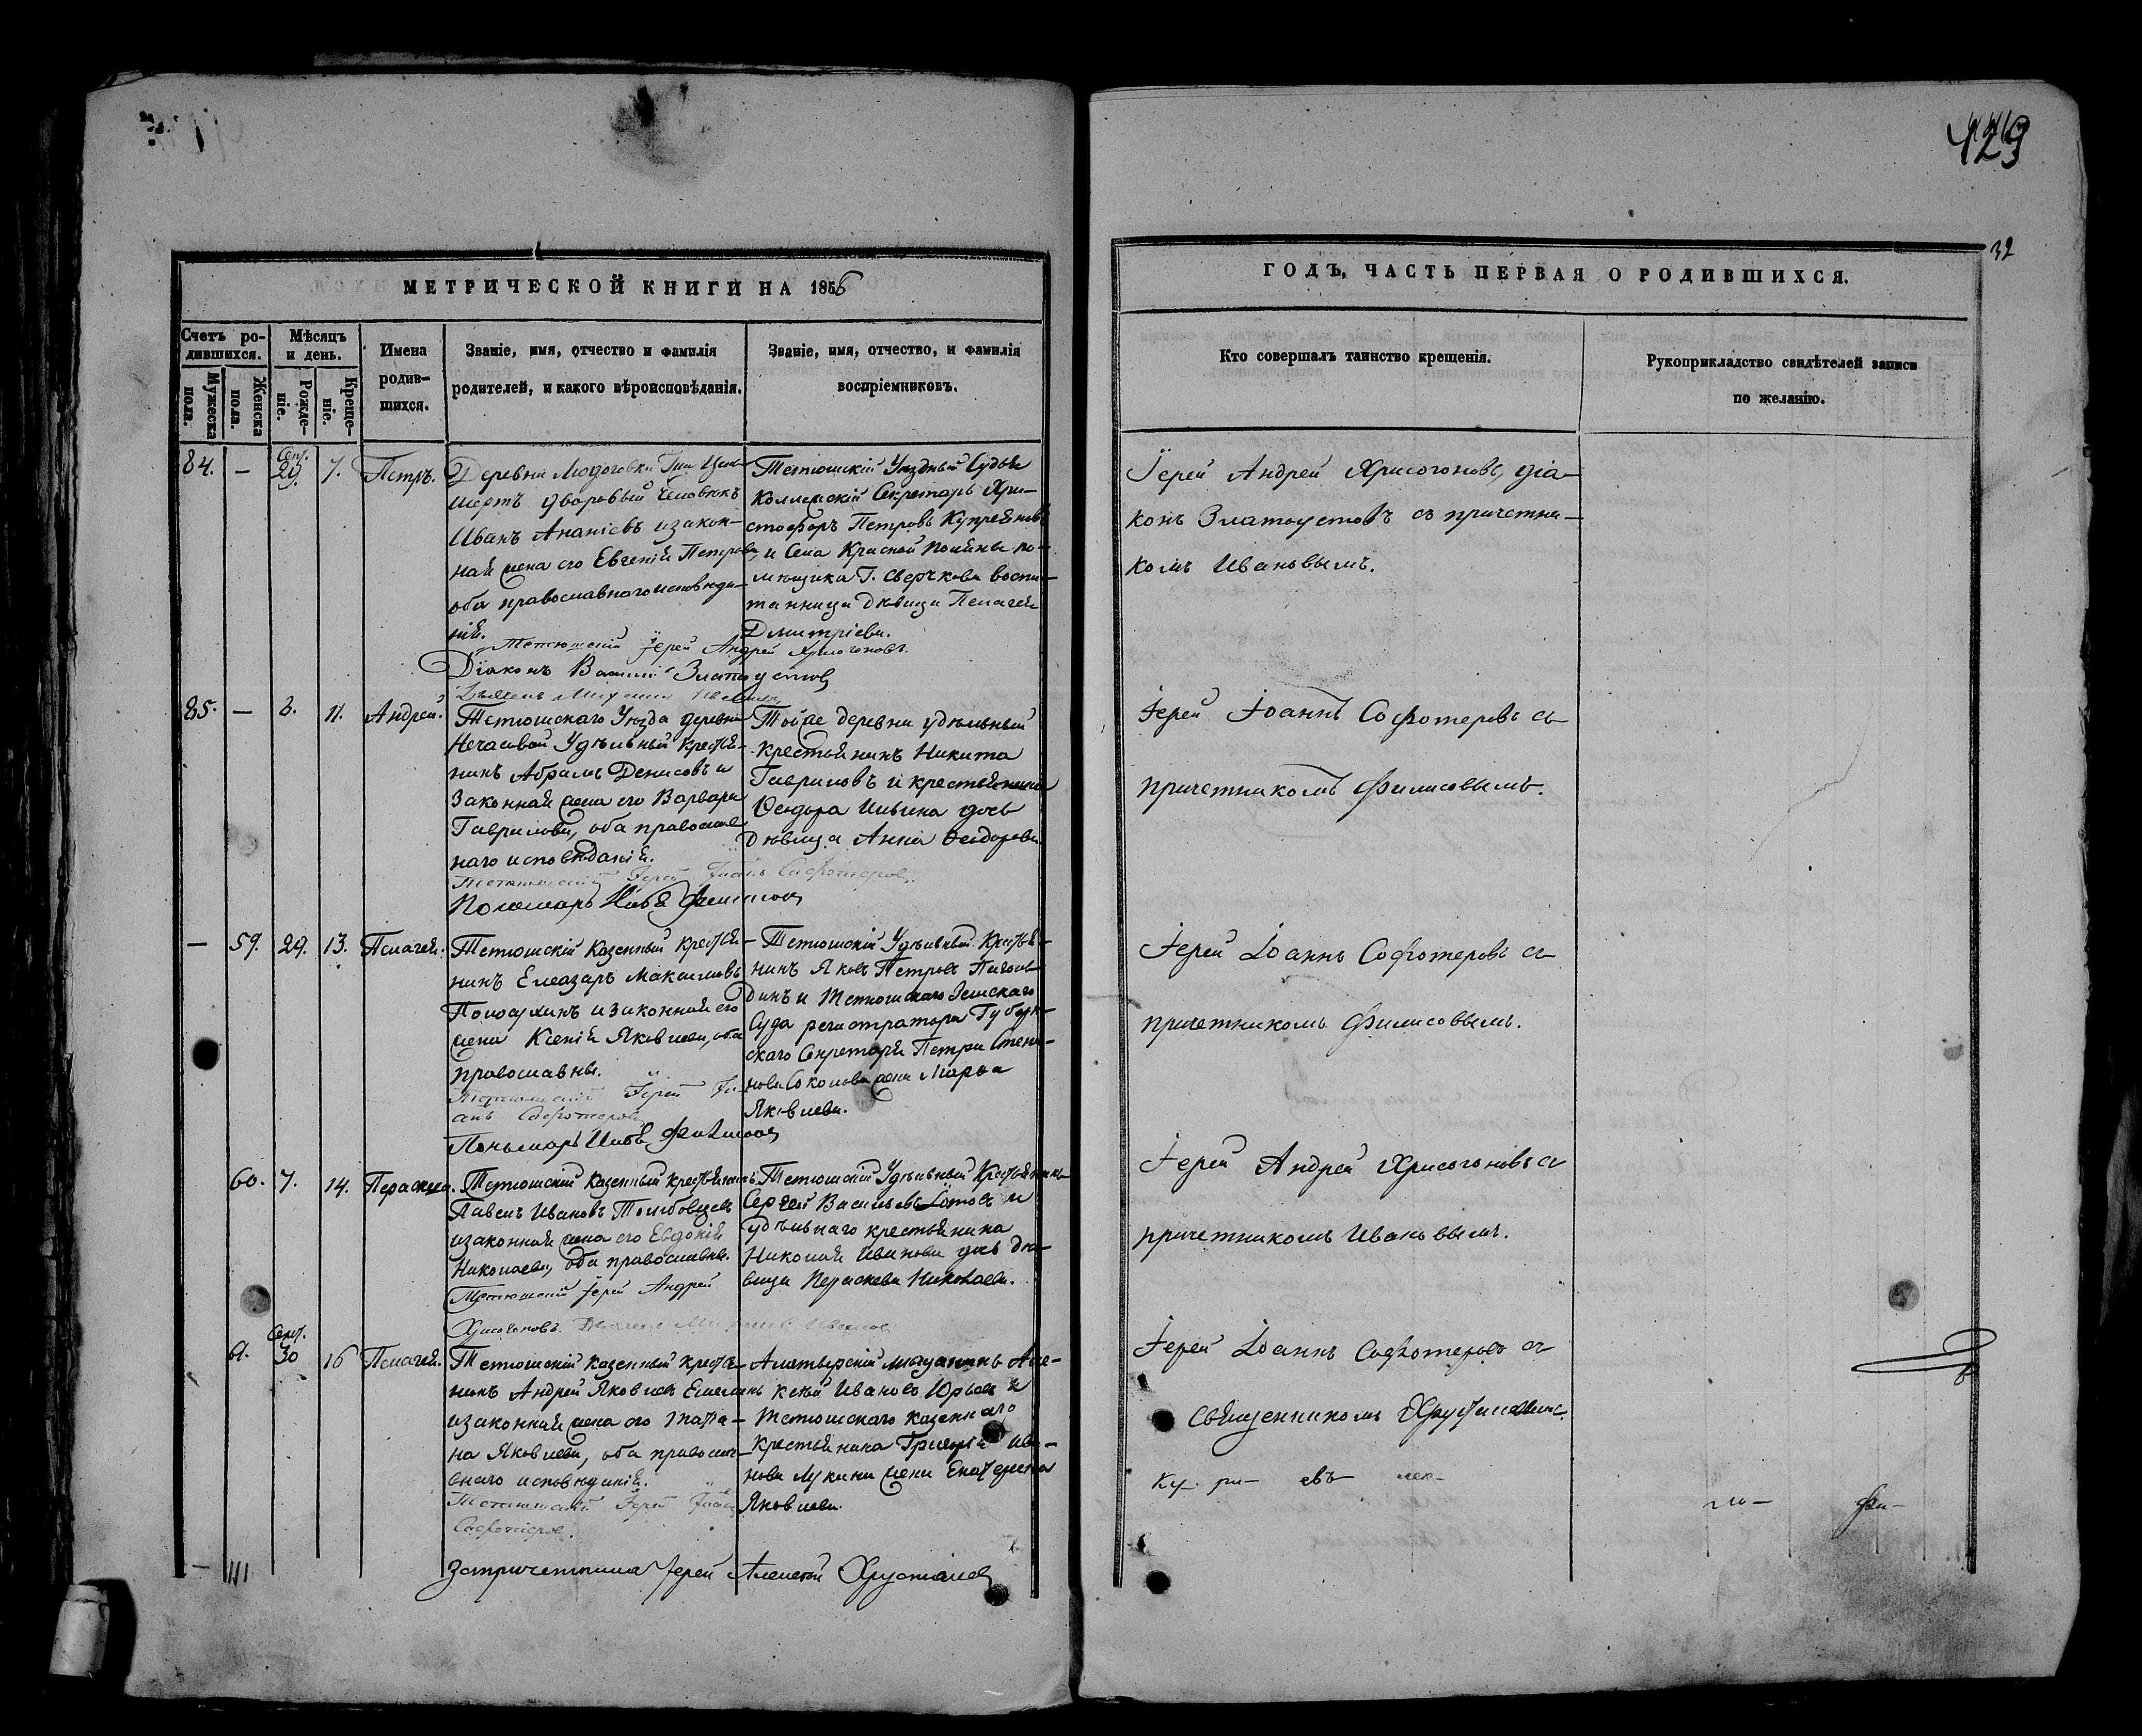 429
32
МЕТРИЧЕСКОЙ КНИГИ НА 1856
ГОДЪ, ЧАСТЬ ПЕРВАЯ О РОДИВШИХСЯ.
Счетъ ро-
дившихся.
Мужеска
пола.
Женска
пола.
Мѣсяцъ
и день.
Рожде-
ніе.
Креще-
ніе.
Имена
родив-
шихся.
Званіе, имя, отчество и фамилія
родителей, и какого вѣроисповѣданія.
Званіе, имя, отчество, и фамилія
воспріемниковъ.
Кто совершалъ таинство крещенія.
Рукоприкладство свидѣтелей записи
по желанію.
84. — Сент. 29. 7. Петръ.
Деревни
дворовый человѣкъ
Иванъ Ананіевъ и закон-
ная жена его Евгенія Петрова,
оба православнаго исповѣда-
нія.
Тетюшскій Іерей Андрей Хрисогоновъ.
Діаконъ Златоустовъ
Тетюшскій Уѣздный Судья
Коллежскій Секретарь Хри-
стофоръ Петровъ Купреяновъ
и Села Красной Поляны по-
мѣщика Г. Сверчкова воспи-
танница дѣвица Пелагея
Дмитріева.
Іерей Андрей Хрисогоновъ, діа-
конъ Златоустовъ съ причетни-
комъ Ивановымъ.
85. — 8. 11. Андрей.
Тетюшскаго Уѣзда деревни
Нечасовой Удѣльный крестья-
нинъ Абрамъ Денисовъ и
Законная жена его Варвара
Гаврилова, оба православ-
наго исповѣданія.
Тетюшскій Іерей Іоаннъ Софотеровъ.
Пономарь Филисовъ
Тойже деревни удѣльный
крестьянинъ Никита
Гавриловъ и крестьянина
Ѳеодора Ильина дочь
Дѣвица Анна Ѳеодорова.
Іерей Іоаннъ Софотеровъ съ
причетникомъ Филисовымъ.
— 59. 29. 13. Пелагея.
Тетюшскій казенный крестья-
нинъ Елеазаръ Максимовъ
и законная его
жена Ксенія Яковлева, оба
православны.
Тетюшскій Іерей Іо-
аннъ Софотеровъ
Пономарь Филисовъ
Тетюшскій Удѣльный Крестья-
нинъ Яковъ Петровъ
и Тетюшскаго Земскаго
Суда регистратора Губерн-
скаго Секретаря Петра Степа-
нова Соколова жена Марѳа
Яковлева.
Іерей Іоаннъ Софотеровъ съ
причетникомъ Филисовымъ.
60. 7. 14. Параскева.
Тетюшскій казенный крестьянинъ
Павелъ Ивановъ
и законная жена его Евдокія
Николаева, оба православны.
Тетюшскій Іерей Андрей
Хрисогоновъ.
Тетюшскій Удѣльный Крестьянинъ
Сергей Васильевъ и
удѣльнаго крестьянина
Николая Иванова дочь дѣ-
вица Параскева Николаева.
Іерей Андрей Хрисогоновъ съ
причетникомъ Ивановымъ.
61. Сент. 30 16 Пелагея.
Тетюшскій казенный крестья-
нинъ Андрей Яковлевъ
и законная жена его Татья-
на Яковлева, оба православ-
наго исповѣданія.
Тетюшскій Іерей Іоаннъ
Софотеровъ.
Алатырскій мѣщанинъ Але-
ксѣй Ивановъ Юрьевъ и
Тетюшскаго казеннаго
крестьянина Григорія Ива-
нова Лукина жена Екатерина
Яковлева.
Іерей Іоаннъ Софотеровъ съ
священникомъ Хрусталевымъ.
За причетника Іерей Алексѣй Хрусталевъ